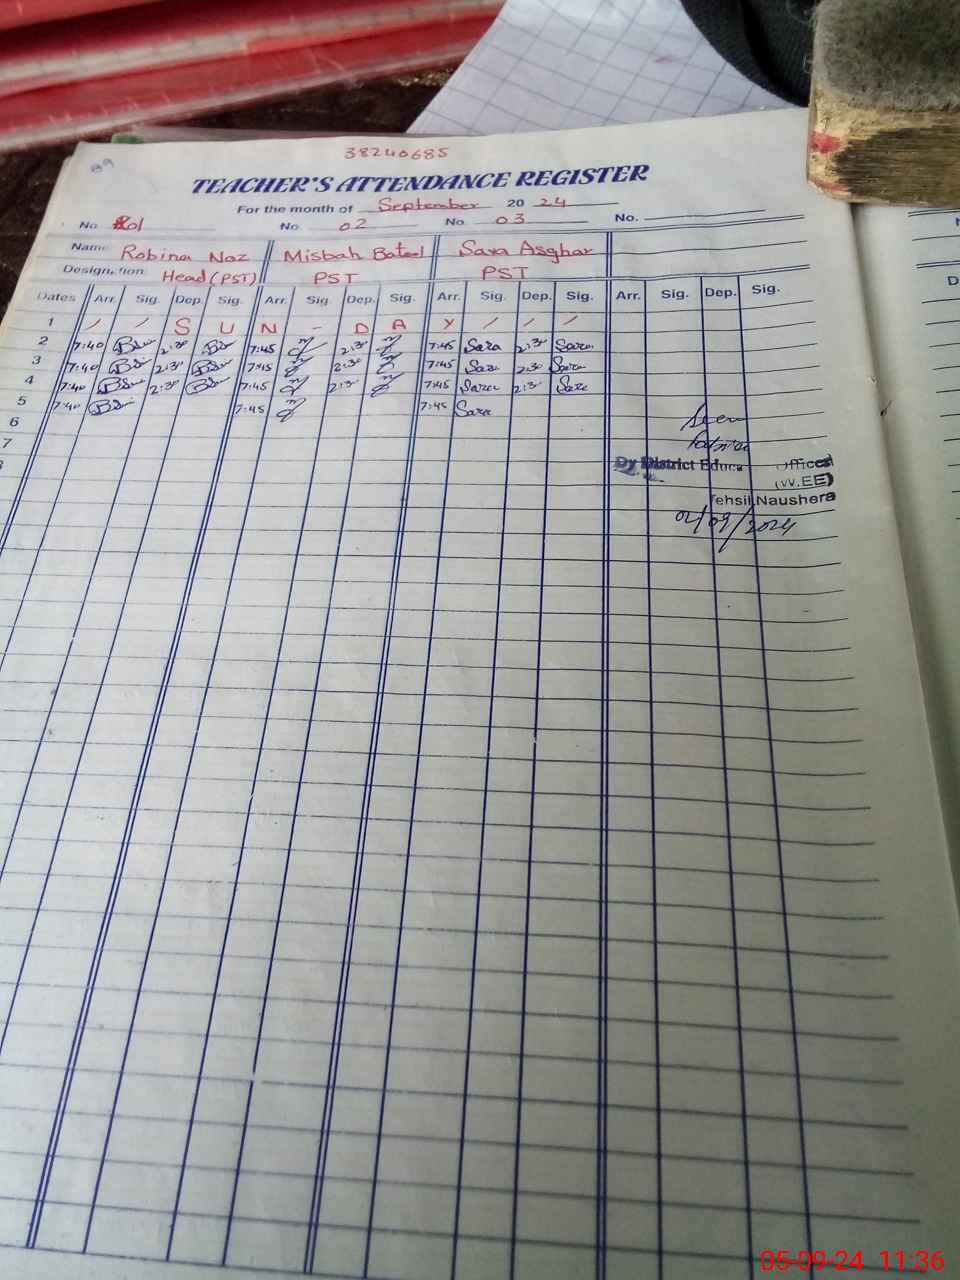 38240685
TEACHER'S ATTENDANCE REGISTER
For the month of September 2024
No. 01 No. 02 No. 03 No.
Name Robina Naz Misbah Batool Sara Asghar
Designation Head (PST) PST PST
Dates Arr. Sig. Dep. Sig. Arr. Sig. Dep. Sig. Arr. Sig. Dep. Sig. Arr. Sig. Dep. Sig.
1 / / S U N - D A Y / / /
2 7:40 2:30 7:45 2:30 7:45 Sara 2:30 Sara
3 7:40 2:30 7:45 2:30 7:45 Sara 2:30 Sara
4 7:40 2:30 7:45 2:30 7:45 Sara 2:30 Sara
5 7:40 7:45 7:45 Sara
6
7
Seen
Dy District Educa Officer
(W.EE)
Tehsil Naushera
02/09/2024
05-09-24 11:36